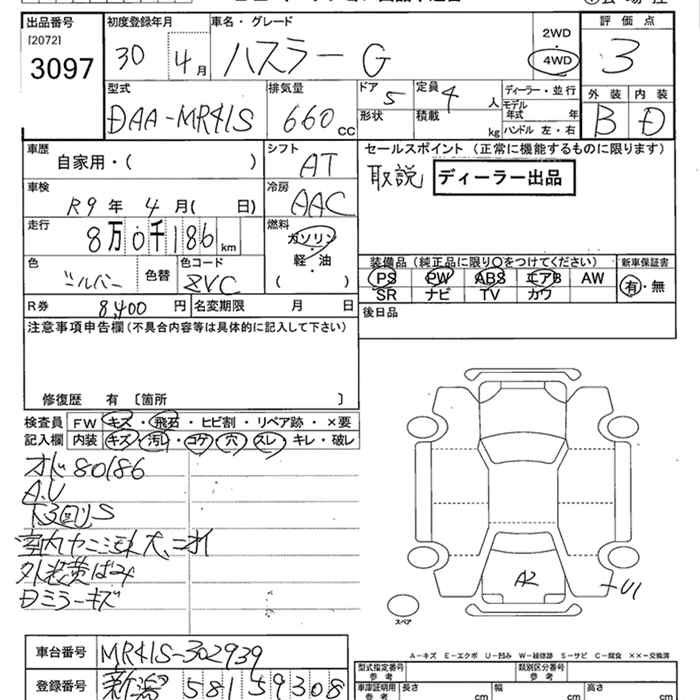 出品番号 初度登録年月 車名・グレード 評価点
[2072]
3097 30 年 4月 ハスラー G 2WD 4WD 3
型式 排気量 ドア 定員 ディーラー・並行 外装 内装
DAA-MR41S 660cc 5 4人 モデル年式 年 B D
形状 積載 kg ハンドル 左・右
車歴 シフト セールスポイント (正常に機能するものに限ります)
自家用・( ) AT 取説 ディーラー出品
車検 冷房
R9年 4月( 日) AAC
走行 燃料
8万0千186km ガソリン
軽・油
( )
装備品 (純正品に限り〇をつけてください) 新車保証書
色 色替 色コード PS PW ABS エアB AW 有・無
シルバー ZVC SR ナビ TV カワ
R券 8,400円 名変期限 月 日 後日品
注意事項申告欄 (不具合内容等は具体的に記入して下さい)
修復歴 有 〔箇所 〕
検査員 FW キズ・飛石・ヒビ割・リペア跡・×要
記入欄 内装 キズ・汚レ・コゲ・穴・スレ・キレ・破レ
オド80186
A.U
下回りS
室内ヤニ汚れ大、ニオイ
外装黄ばみ
Dミラーキズ
A2
U1
スペア
A-キズ E-エクボ U-凹み W-補修跡 S-サビ C-腐食 ××-交換済
車台番号 MR41S-302939
型式指定番号 参考 類別区分番号 参考
登録番号 新潟 581 59308
車庫証明用 参考 長さ cm 幅 cm 高さ cm